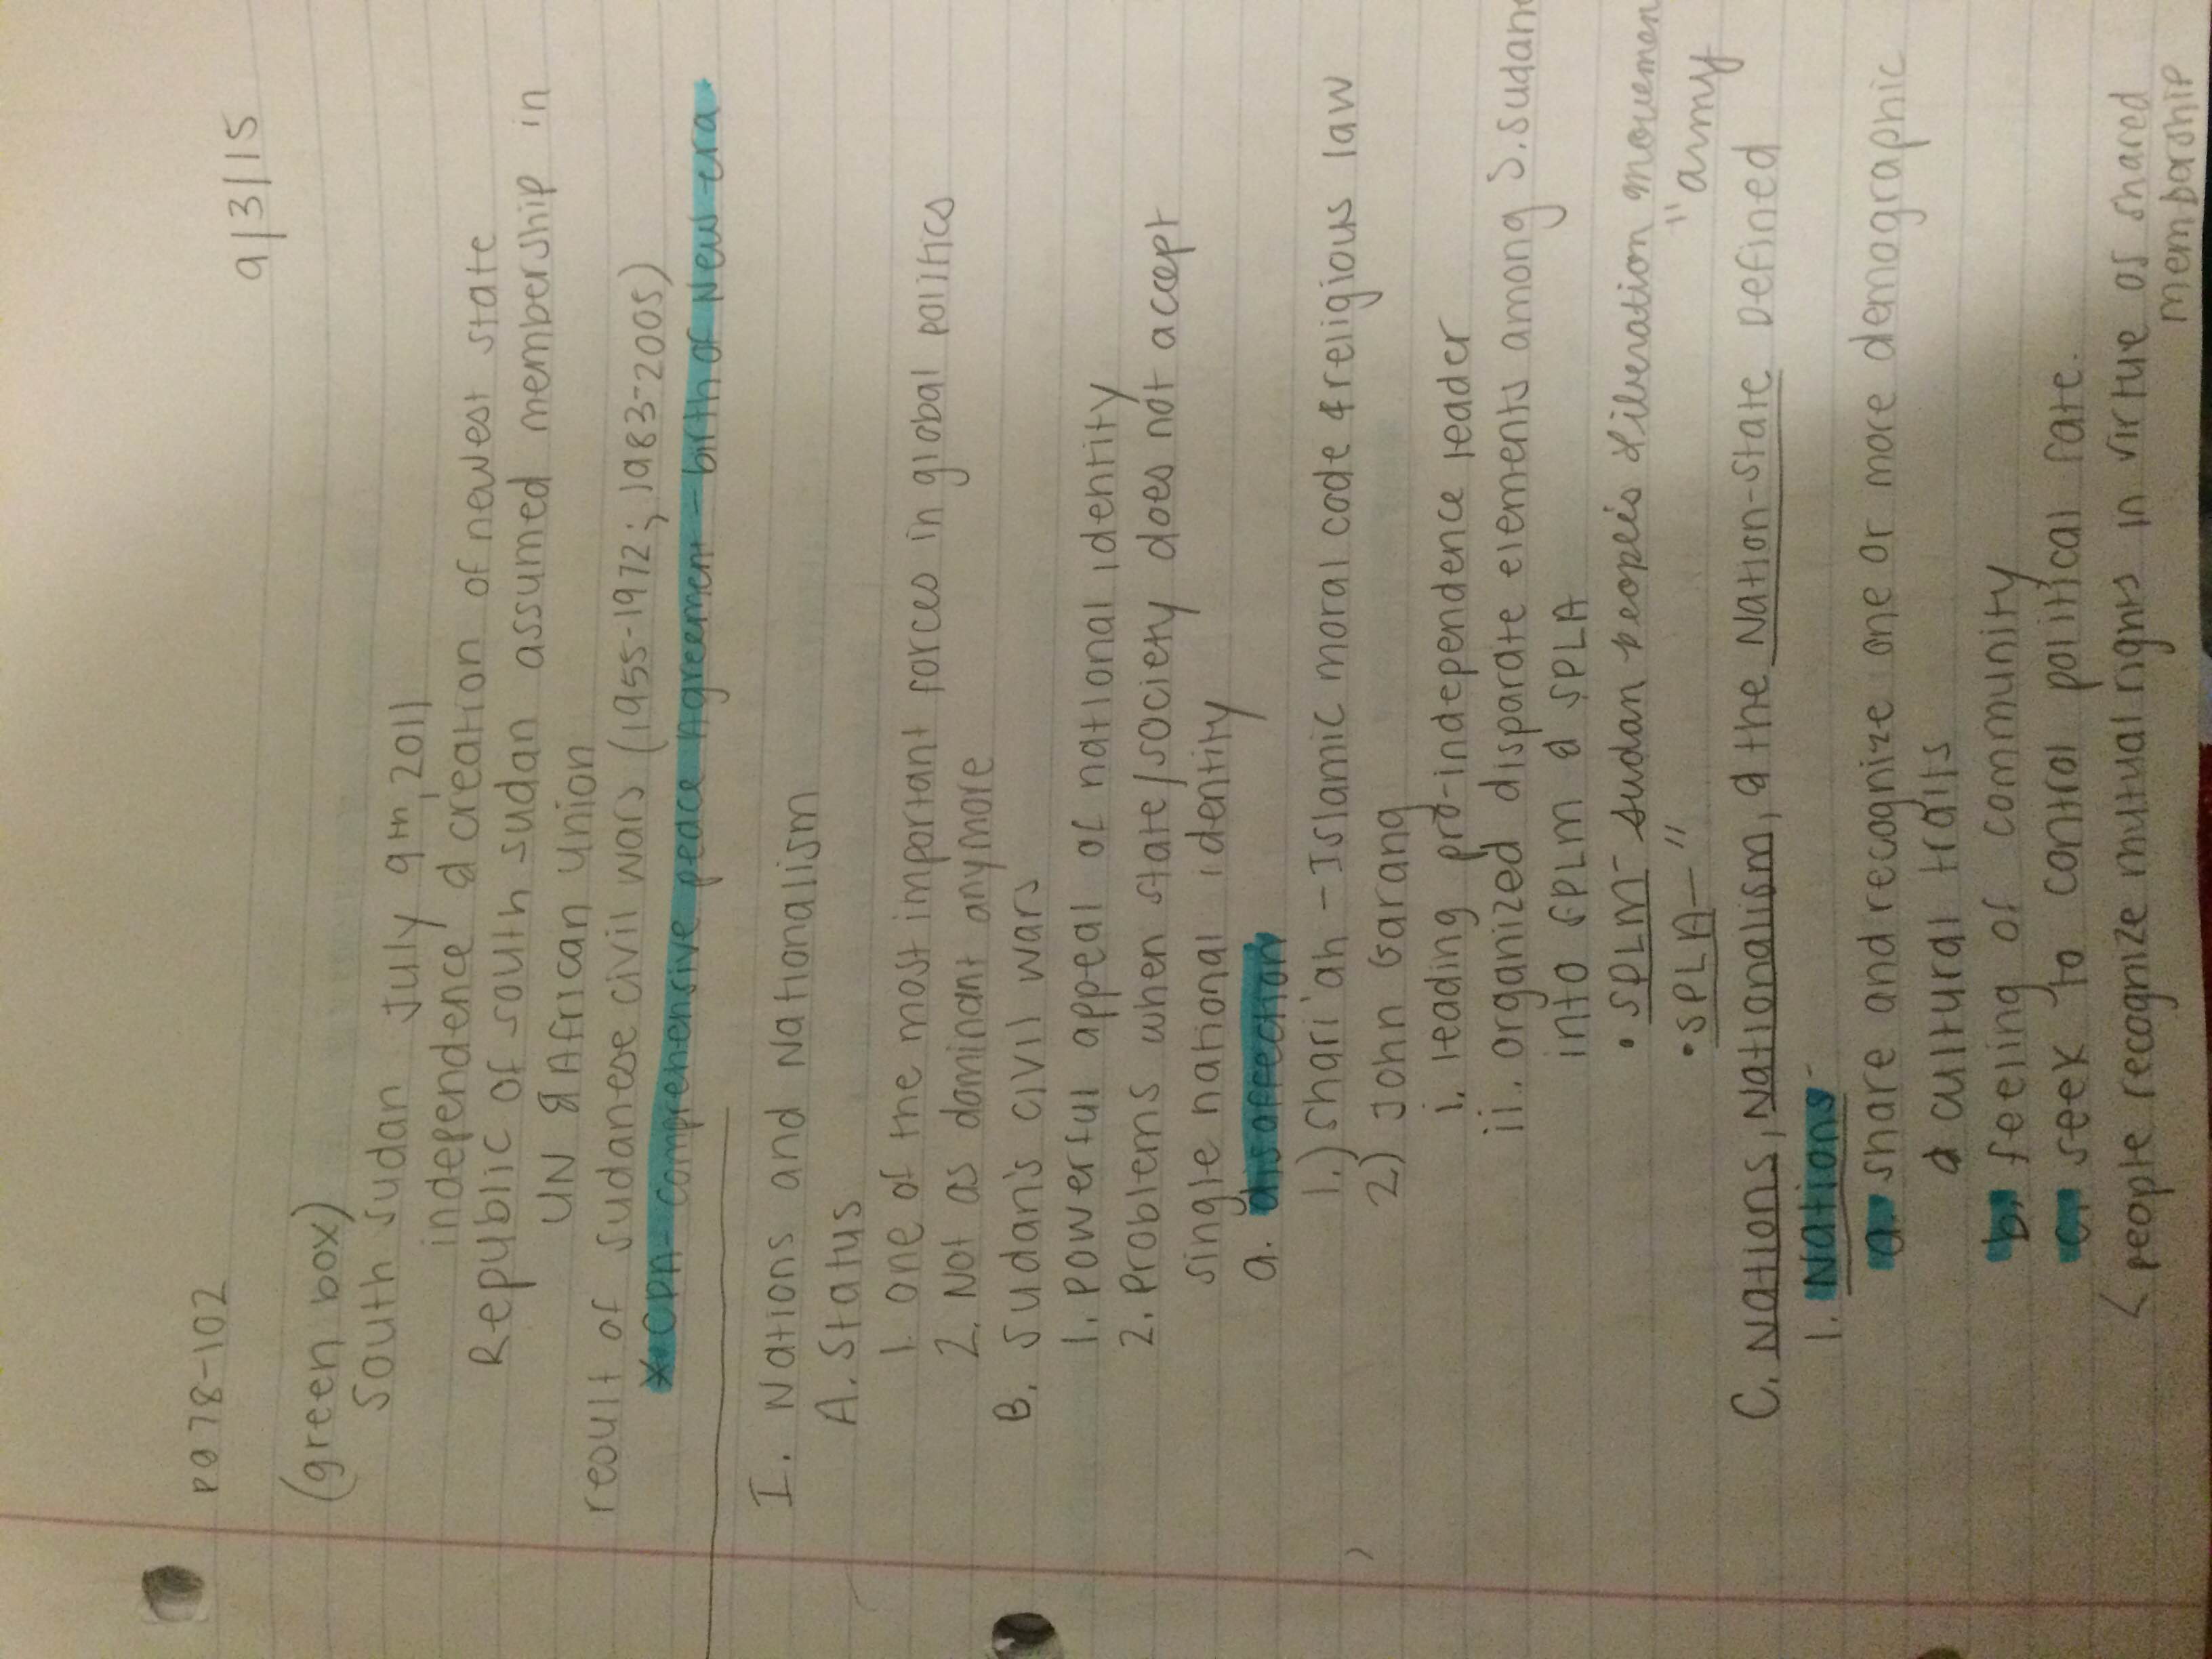 pg 78-102
9/3/15
(green box)
South Sudan July 9th, 2011
independence & creation of newest state
Republic of south sudan assumed membership in
UN & African Union
result of sudanese civil wars (1955-1972; 1983-2005)
*CPA- comprehensive peace Agreement - birth of New era
I. Nations and Nationalism
A. Status
1. one of the most important forces in global politics
2. Not as dominant anymore
B. Sudan's civil wars
1. Powerful appeal of national identity
2. Problems when state/society does not accept
single national identity
a. disaffection
1.) Shari'ah - Islamic moral code & religious law
2) John Garang
i. leading pro-independence leader
ii. organized disparate elements among S.Sudan
into SPLM & SPLA
• SPLM - Sudan people's Liberation Movemen
• SPLA - " " army
C. Nations, Nationalism, & the Nation-State Defined
1. Nations-
a. share and recognize one or more demographic
& cultural traits
b. feeling of community
c. seek to control political fate.
< people recognize mutual rights in virtue of shared
membership